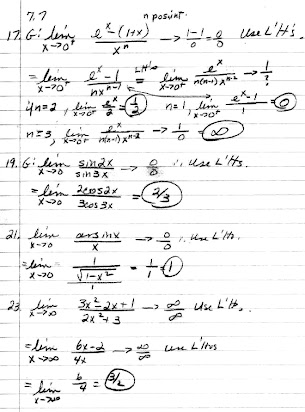 7.7 n pos.int.
17. G: lim x→0⁺ (eˣ-(1+x))/xⁿ → (1-1)/0 = 0/0 Use L'H's.
= lim x→0⁺ (eˣ-1)/(nxⁿ⁻¹) =(L'H's) lim x→0⁺ eˣ/(n(n-1)xⁿ⁻²) → 1/?
If n=2, lim x→0⁺ eˣ/2 = 1/2 n=1, lim x→0⁺ (eˣ-1)/1 = 0
n≥3, lim x→0⁺ eˣ/(n(n-1)xⁿ⁻²) → 1/0 = ∞
19. G: lim x→0 sin2x/sin3x → 0/0 ∴ Use L'Hs
= lim x→0 2cos2x/3cos3x = 2/3
21. lim x→0 arcsinx/x → 0/0 ∴ Use L'Hs.
= lim x→0 (1/√(1-x²))/1 = 1/1 = 1
23. lim x→∞ (3x²-2x+1)/(2x²+3) → ∞/∞ Use L'Hs.
= lim x→∞ (6x-2)/4x → ∞/∞ use L'Hs
= lim x→∞ 6/4 = 3/2